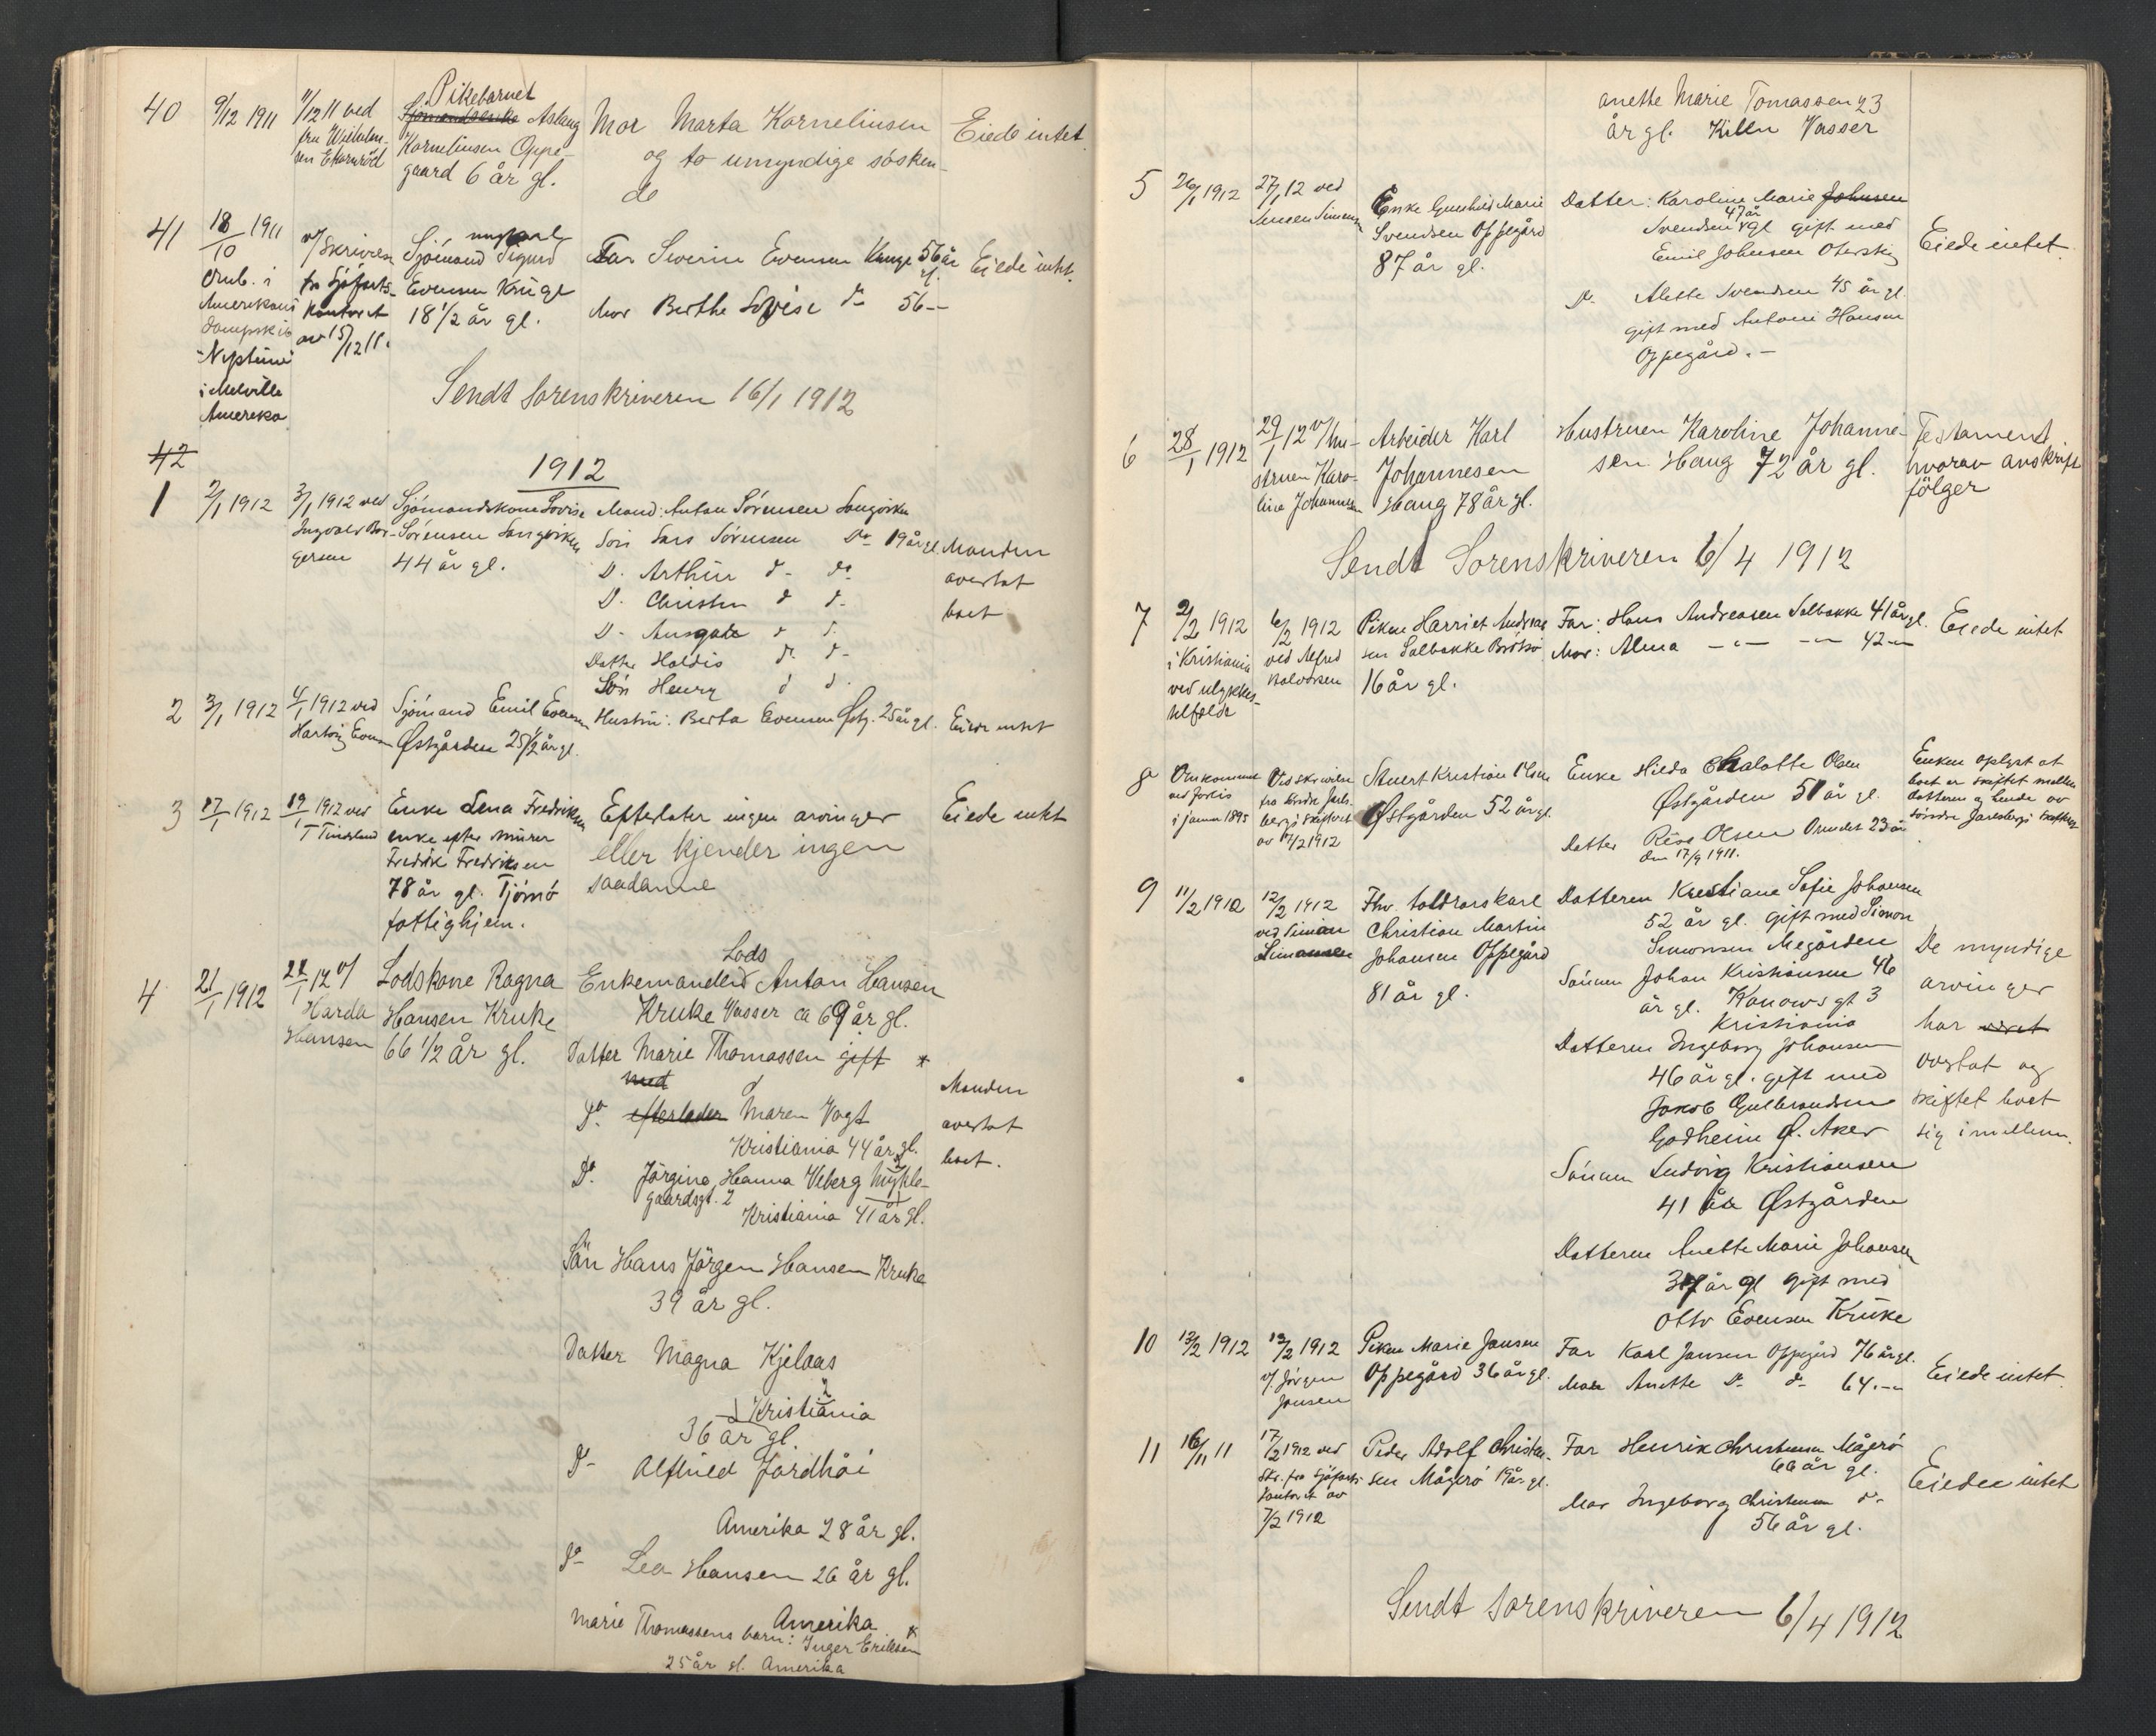 40
9/12 1911
11/12 11 ved
fru Wilhelm-
sen Ekornröd
Pikebarnet
Sjömandsenke Aslaug
Korneliusen Oppe-
gaard 6 år gl.
Mor Marta Korneliusen
og to umyndige sösken-
de
Eiede intet.
41
18/10 1911
Omb. i
Amerikansk
dampskib
"Neptune"
i Melville
Amerika
v/ Skrivelse
fra Sjöfarts-
kontoret
av 15/12 11.
ungkarl
Sjömand Sigurd
Evensen Kruge
18 1/2 år gl.
Far Severin Evensen Kruge 56 år gl.
Mor Berthe Lovise do 56 -"-
Eiede intet.
Sendt Sorenskriveren 16/1 1912
42
1912
1
2/1 1912
3/1 1912 ved
Ingvald Bør-
gersen
Sjömandskone Lovise
Sørensen Sangviken
44 år gl.
Mand: Anton Sørensen Sangviken
Søn Lars Sørensen Do 19 år gl.
D. Arthur d- do
D. Christen d d-
D- Ansgate d d.
Datter Holdis d. d-
Søn Henry d d.
Manden
overtat
boet
2
3/1 1912
4/1 1912 ved
Hartvig Evensen
Sjömand Emil Evensen
Østgården 25 1/2 år gl.
Hustru: Berta Evensen Østg. 25 år gl.
Eiede intet
3
17/1 1912
19/1 1912 ved
T Tindslund
Enke Lena Fredriksen
enke efter murer
Fredrik Fredriksen
78 år gl. Tjömö
fattighjem.
Efterlater ingen arvinger
eller kjender ingen
saadanne
Eiede intet
4
21/1 1912
22/1 12 v/
Harda
Hansen
Lodskone Ragna
Hansen Kruke
66 1/2 år gl.
Lods
Enkemanden Anton Hansen
Kruke Vasser ca 69 år gl.
Datter Marie Thomassen gift *
med d
Do efterlader Maren Vogt
Kristiania 44 år gl.
Do. Jörgine Hanna Viberg Nykle-
gaardsgt. 2
Kristiania 41 år gl.
Sön Hans Jörgen Hansen Kruke
39 år gl.
Datter Magna Kjelaas
Kristiania
36 år gl.
Do Alfhild Jordhöi
Amerika 28 år gl.
Do Lea Hansen 26 år gl.
Amerika
Marie Thomassens barn: Inger Eriksen
25 år gl. Amerika
Manden
overtat
boet.
anette Marie Tomassen 23
år gl. Killen Vasser
5
26/1 1912
27/1 12 ved
Simensen
Enke Gunhild Marie
Svendsen Oppegård
87 år gl.
Datter: Karoline Marie Johnsen
Svendsen 47 år gl gift med
Emil Johnsen Oterstig
D- Alette Svendsen 45 år gl.
gift med Antoni Hansen
Oppegård. -
Eiede intet.
6
28/1 1912
29/1 12 v/ hu-
struen Karo-
line Johannesen
Arbeider Karl
Johannesen
Haug 78 år gl.
Hustruen Karoline Johanne-
sen Haug 72 år gl.
Testament
hvorav avskrift
fölger
Sendt Sorenskriveren 6/4 1912
7
2/2 1912
i Kristiania
ved ulykkes-
tilfælde
6/2 1912
ved Alfred
Halvorsen
Piken Harriet Andreas-
sen Solbakke Brötsö
16 år gl.
Far: Hans Andreasen Solbakke 41 år gl.
Mor: Alma -"- -"- 42 -"-
Eiede intet
8
Omkommet
ved forlis
i januar 1895
Ved skrivelse
fra Söndre Jarls-
bergs skifteret
av 10/2 1912
Stuert Kristian Olsen
Østgården 52 år gl.
Enke Hilda Chalotte Olsen
Østgården 51 år gl.
Datter Rosa Olsen Ormelet 23 år
den 17/9 1911.
Enken oplyst at
boet er skiftet mellem
datteren og hende av
söndre Jarlsbergs skifteret
9
11/2 1912
12/2 1912
ved Simon
Simonsen
Fhv. toldroerskarl
Christian Martin
Johansen Oppegård
81 år gl.
Datteren Kristiane Sofie Johansen
52 år gl. gift med Simon
Simonsen Megården
Sönnen Johan Kristiansen 46
år gl. Kanows gt 3
Kristiania
Datteren Ingeborg Johansen
46 år gl. gift med
Jakob Gulbrandsen
Godheim Ø. Aker
Sönnen Ludvig Kristiansen
41 år Østgården
Datteren Anette Marie Johansen
37 år gl gift med
Otto Evensen Kruke
De myndige
arvinger
har vært
overtat og
skiftet boet
sig imellem.
10
12/2 1912
12/2 1912
v/ Jörgen
Jonsen
Piken Marie Jansen
Oppegård 36 år gl.
Far Karl Jansen Oppegård 76 år gl.
Mor Anette D- d- 64 -"-
Eiede intet.
11
16/11 11
17/2 1912 ved
Skr. fra Sjöfarts-
kontoret av
7/2 1912
Peder Adolf Christen-
sen Mågerö 19 år gl.
Far Henrik Christensen Mågerö
66 år gl.
Mor Ingeborg Christensen d-
56 år gl.
Eiede intet
Sendt Sorenskriveren 6/4 1912